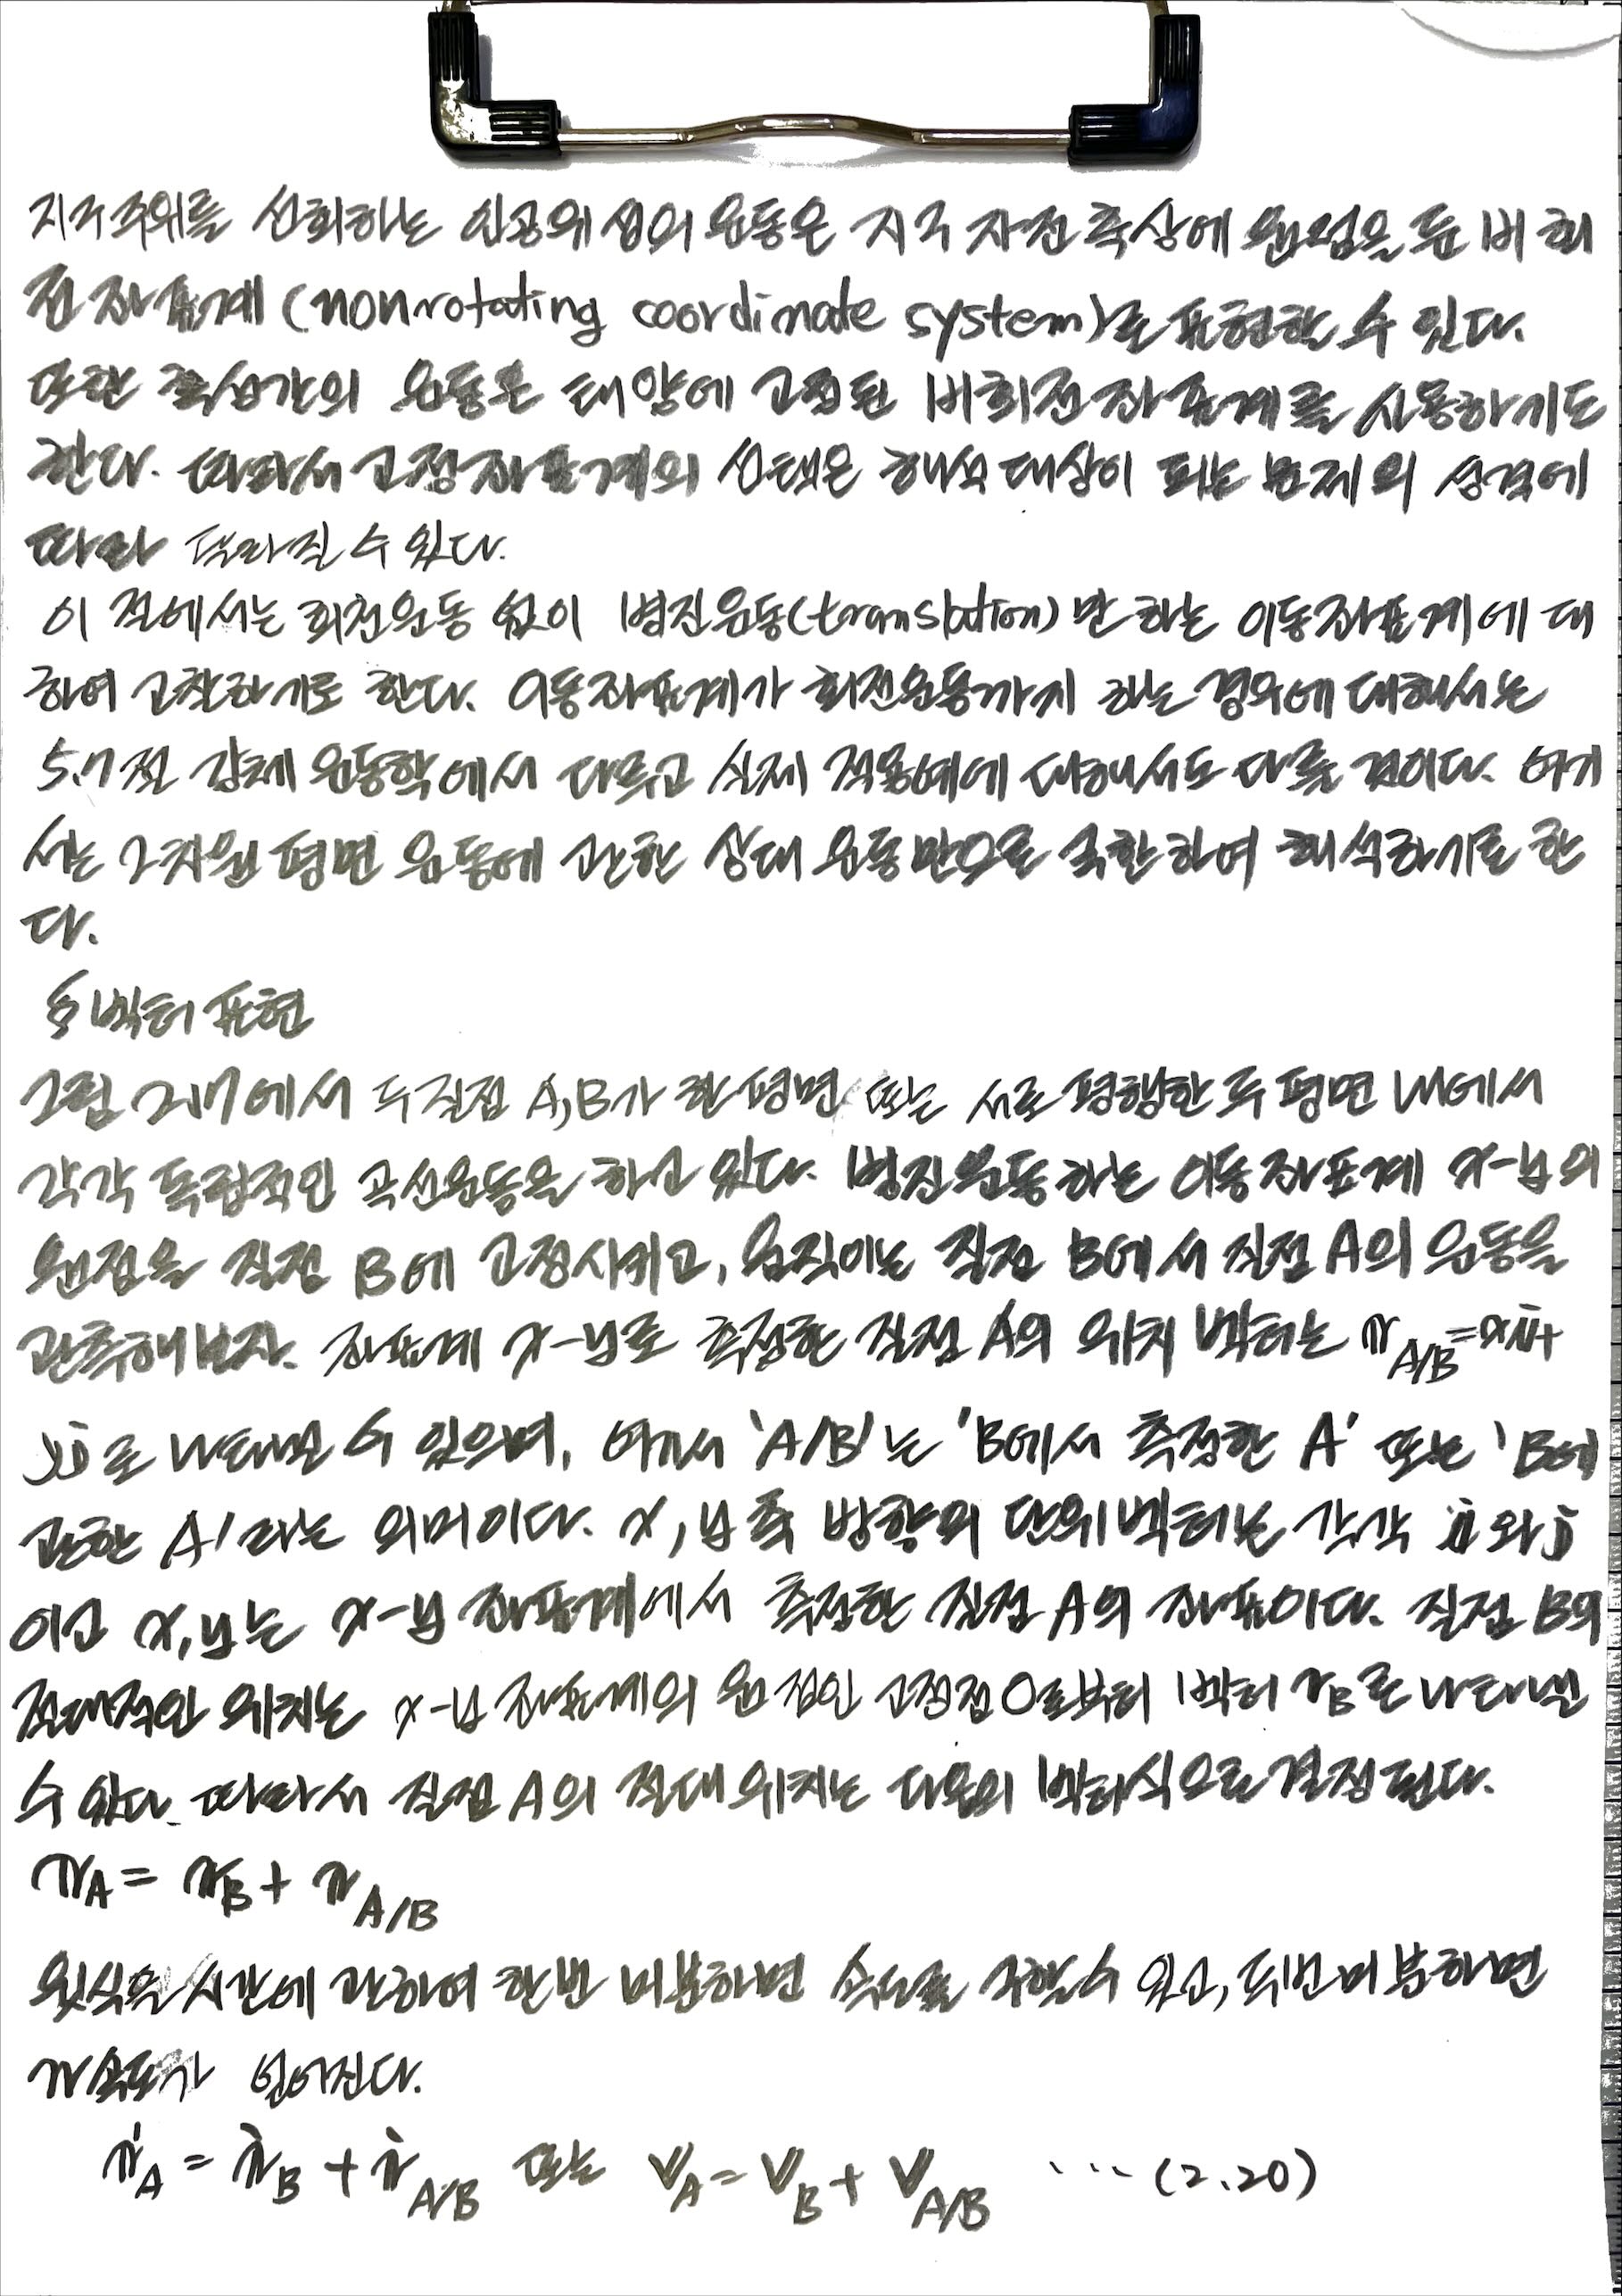 지구주위를 선회하는 인공위성의 운동은 지구 자전축상에 원점을 둔 비회
전좌표계(nonrotating coordinate system)로 표현할 수 있다.
또한 혹성간의 운동은 태양에 고정된 비회전좌표계를 사용하기도
한다. 따라서 고정좌표계의 선택은 해석대상이 되는 문제의 성격에
따라 달라질 수 있다.
이 절에서는 회전운동 없이 병진운동(translation)만 하는 이동좌표계에 대
하여 고찰하기로 한다. 이동좌표계가 회전운동까지 하는 경우에 대해서는
5.7절 강체 운동학에서 다루고 실제 적용예에 대해서도 다룰 것이다. 여기
서는 2차원 평면 운동에 관한 상대 운동만으로 국한하여 해석하기로 한
다.
§ 벡터 표현
그림 2.17에서 두 질점 A, B가 한 평면 또는 서로 평행한 두 평면 내에서
각각 독립적인 곡선운동을 하고 있다. 병진운동하는 이동좌표계 x-y의
원점을 질점 B에 고정시키고, 움직이는 질점 B에서 질점 A의 운동을
관측해보자. 좌표계 x-y로 측정한 질점 A의 위치 벡터는 r_A/B=xi+
yj로 나타낼 수 있으며, 여기서 'A/B'는 'B에서 측정한 A' 또는 'B에
관한 A'라는 의미이다. x, y축 방향의 단위벡터는 각각 i와 j
이고 x, y는 x-y 좌표계에서 측정한 질점 A의 좌표이다. 질점 B의
절대적인 위치는 x-y 좌표계의 원점인 고정점 O로부터 벡터 r_B로 나타낼
수 있다. 따라서 질점 A의 절대위치는 다음의 벡터식으로 결정된다.
r_A = r_B + r_A/B
윗식을 시간에 관하여 한번 미분하면 속도를 구할수 있고, 두번 미분하면
가속도가 얻어진다.
ṙ_A = ṙ_B + ṙ_A/B 또는 V_A = V_B + V_A/B ... (2.20)